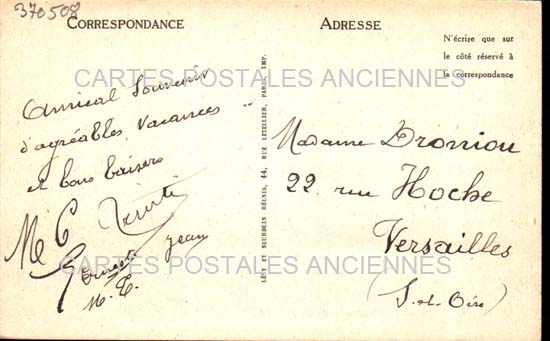 370508
CORRESPONDANCE
Amical Souvenir
d'agréables vacances
et bons baisers
M C
Ernest
Jean
M. T.
LÉVY ET NEURDEIN RÉUNIS, 44, RUE LETELLIER, PARIS, IMP.
ADRESSE
N'écrire que sur
le côté réservé à
la correspondance
Madame Droniou
22 rue Hoche
Versailles
(S.-et-Oise)
CARTES POSTALES ANCIENNES
CARTES POSTALES ANCIENNES